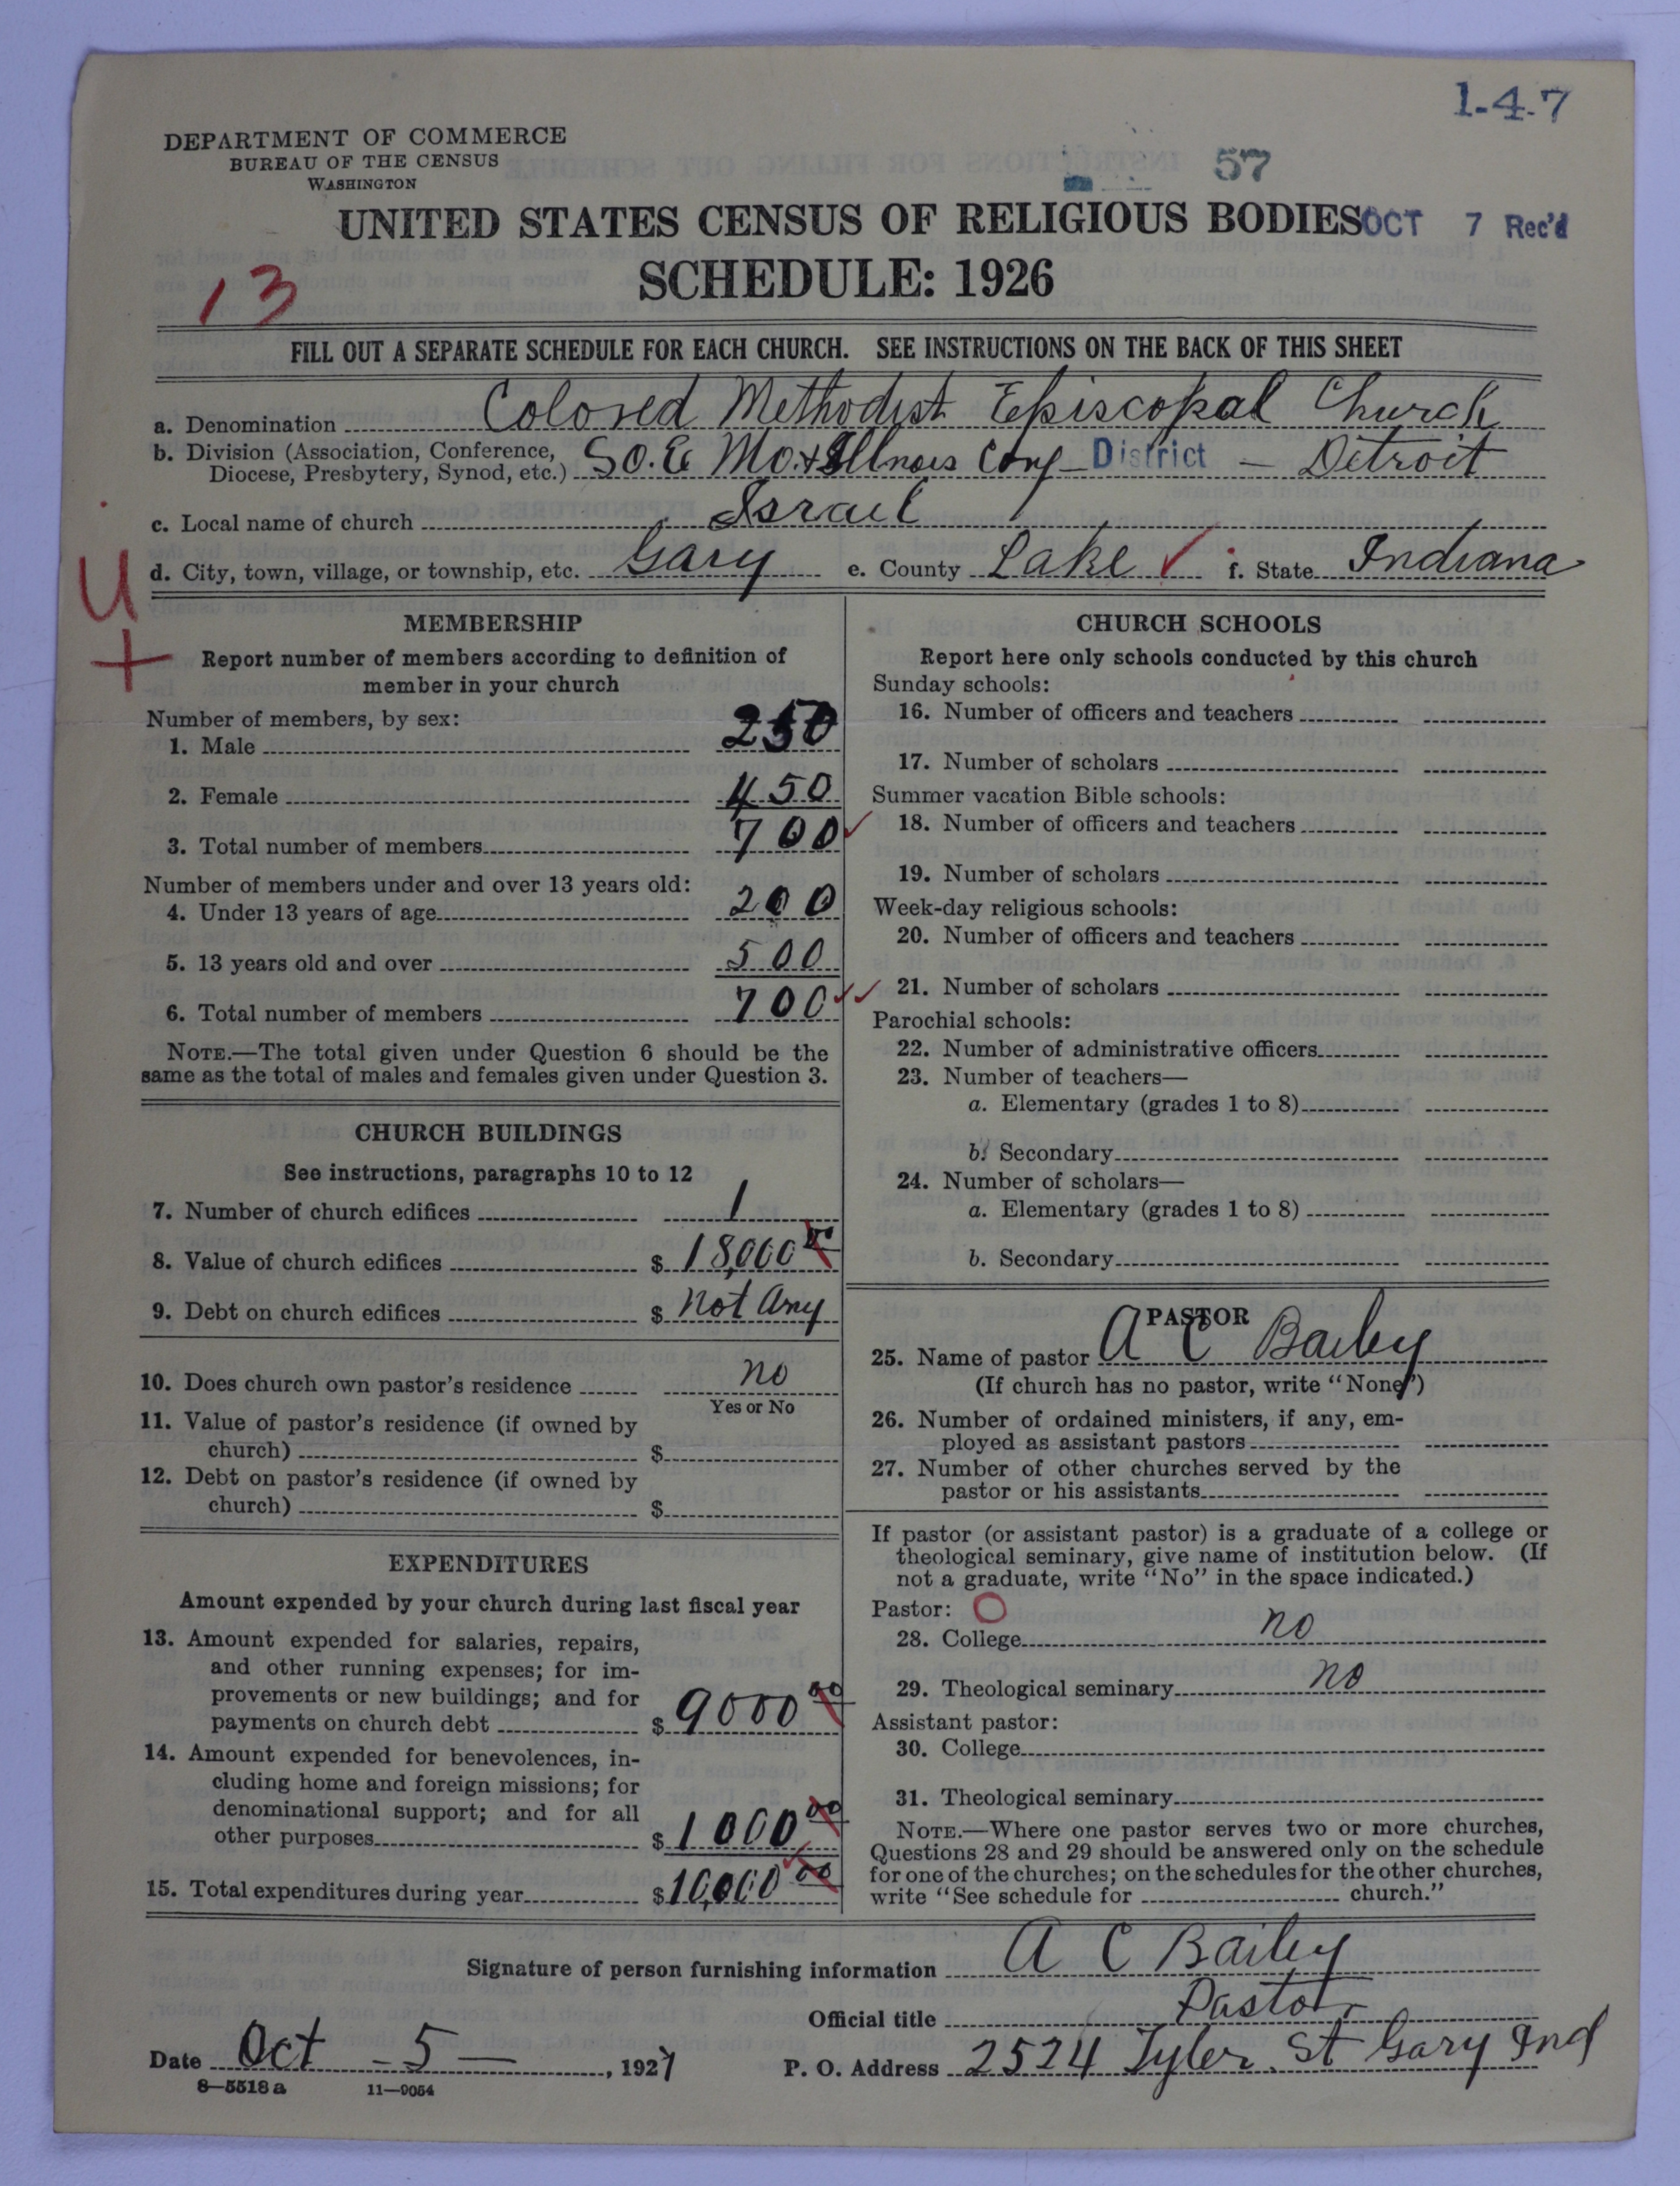 1-4-7
DEPARTMENT OF COMMERCE
BUREAU OF THE CENSUS
WASHINGTON
57
UNITED STATES CENSUS OF RELIGIOUS BODIES OCT 7 Rec'd
SCHEDULE: 1926
13
FILL OUT A SEPARATE SCHEDULE FOR EACH CHURCH. SEE INSTRUCTIONS ON THE BACK OF THIS SHEET
a. Denomination Colored Methodist Episcopal Church
b. Division (Association, Conference, Diocese, Presbytery, Synod, etc.) So. E Mo. & Illinois Conf - District - Detroit
c. Local name of church Israel
d. City, town, village, or township, etc. Gary e. County Lake f. State Indiana
U
+
MEMBERSHIP
Report number of members according to definition of
member in your church
Number of members, by sex:
1. Male 250
2. Female 450
3. Total number of members 700
Number of members under and over 13 years old:
4. Under 13 years of age 200
5. 13 years old and over 500
6. Total number of members 700
NOTE.—The total given under Question 6 should be the
same as the total of males and females given under Question 3.
CHURCH BUILDINGS
See instructions, paragraphs 10 to 12
7. Number of church edifices 1
8. Value of church edifices $ 18,000 00
9. Debt on church edifices $ not any
10. Does church own pastor's residence no
Yes or No
11. Value of pastor's residence (if owned by
church) $
12. Debt on pastor's residence (if owned by
church) $
EXPENDITURES
Amount expended by your church during last fiscal year
13. Amount expended for salaries, repairs,
and other running expenses; for im-
provements or new buildings; and for
payments on church debt $ 9000 00
14. Amount expended for benevolences, in-
cluding home and foreign missions; for
denominational support; and for all
other purposes $ 1000 00
15. Total expenditures during year $ 10,000 00
CHURCH SCHOOLS
Report here only schools conducted by this church
Sunday schools:
16. Number of officers and teachers
17. Number of scholars
Summer vacation Bible schools:
18. Number of officers and teachers
19. Number of scholars
Week-day religious schools:
20. Number of officers and teachers
21. Number of scholars
Parochial schools:
22. Number of administrative officers
23. Number of teachers—
a. Elementary (grades 1 to 8)
b. Secondary
24. Number of scholars—
a. Elementary (grades 1 to 8)
b. Secondary
PASTOR
25. Name of pastor A C Bailey
(If church has no pastor, write "None")
26. Number of ordained ministers, if any, em-
ployed as assistant pastors
27. Number of other churches served by the
pastor or his assistants
If pastor (or assistant pastor) is a graduate of a college or
theological seminary, give name of institution below. (If
not a graduate, write "No" in the space indicated.)
Pastor: O
28. College no
29. Theological seminary no
Assistant pastor:
30. College
31. Theological seminary
NOTE.—Where one pastor serves two or more churches,
Questions 28 and 29 should be answered only on the schedule
for one of the churches; on the schedules for the other churches,
write "See schedule for church."
Signature of person furnishing information A C Bailey
Official title Pastor
Date Oct - 5 -, 1927 P. O. Address 2524 Tyler St Gary Ind
8—5518 a 11—9054